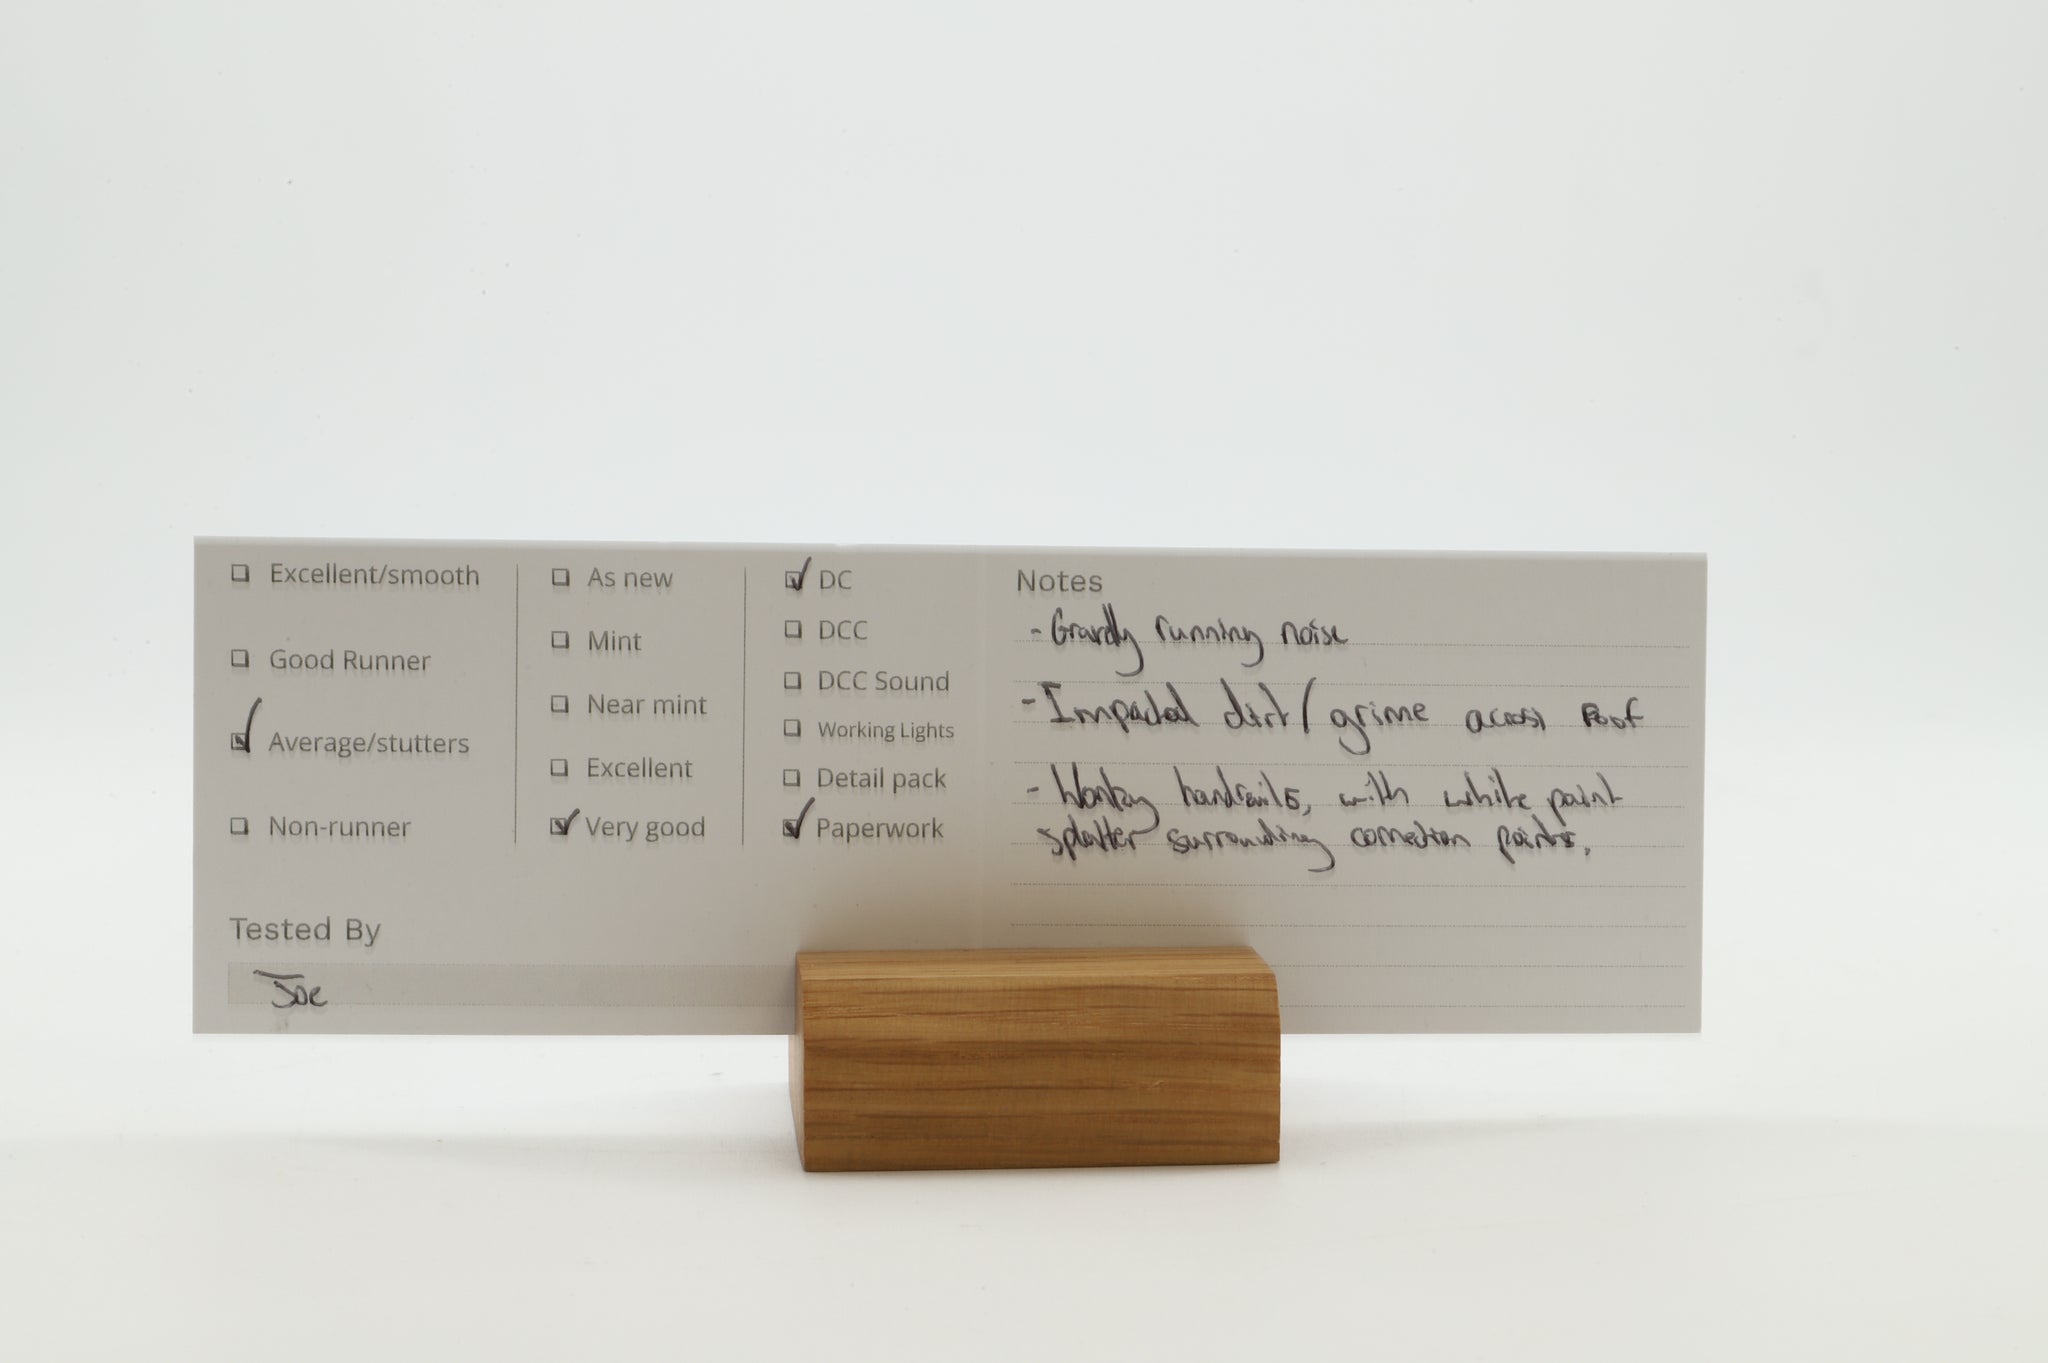 Excellent/smooth
Good Runner
Average/stutters
Non-runner
As new
Mint
Near mint
Excellent
Very good
DC
DCC
DCC Sound
Working Lights
Detail pack
Paperwork
Tested By
Joe
Notes
- running noise
- Impacted dirt/grime across roof
- Wonky handrails, with white paint
splatter surrounding connection points.